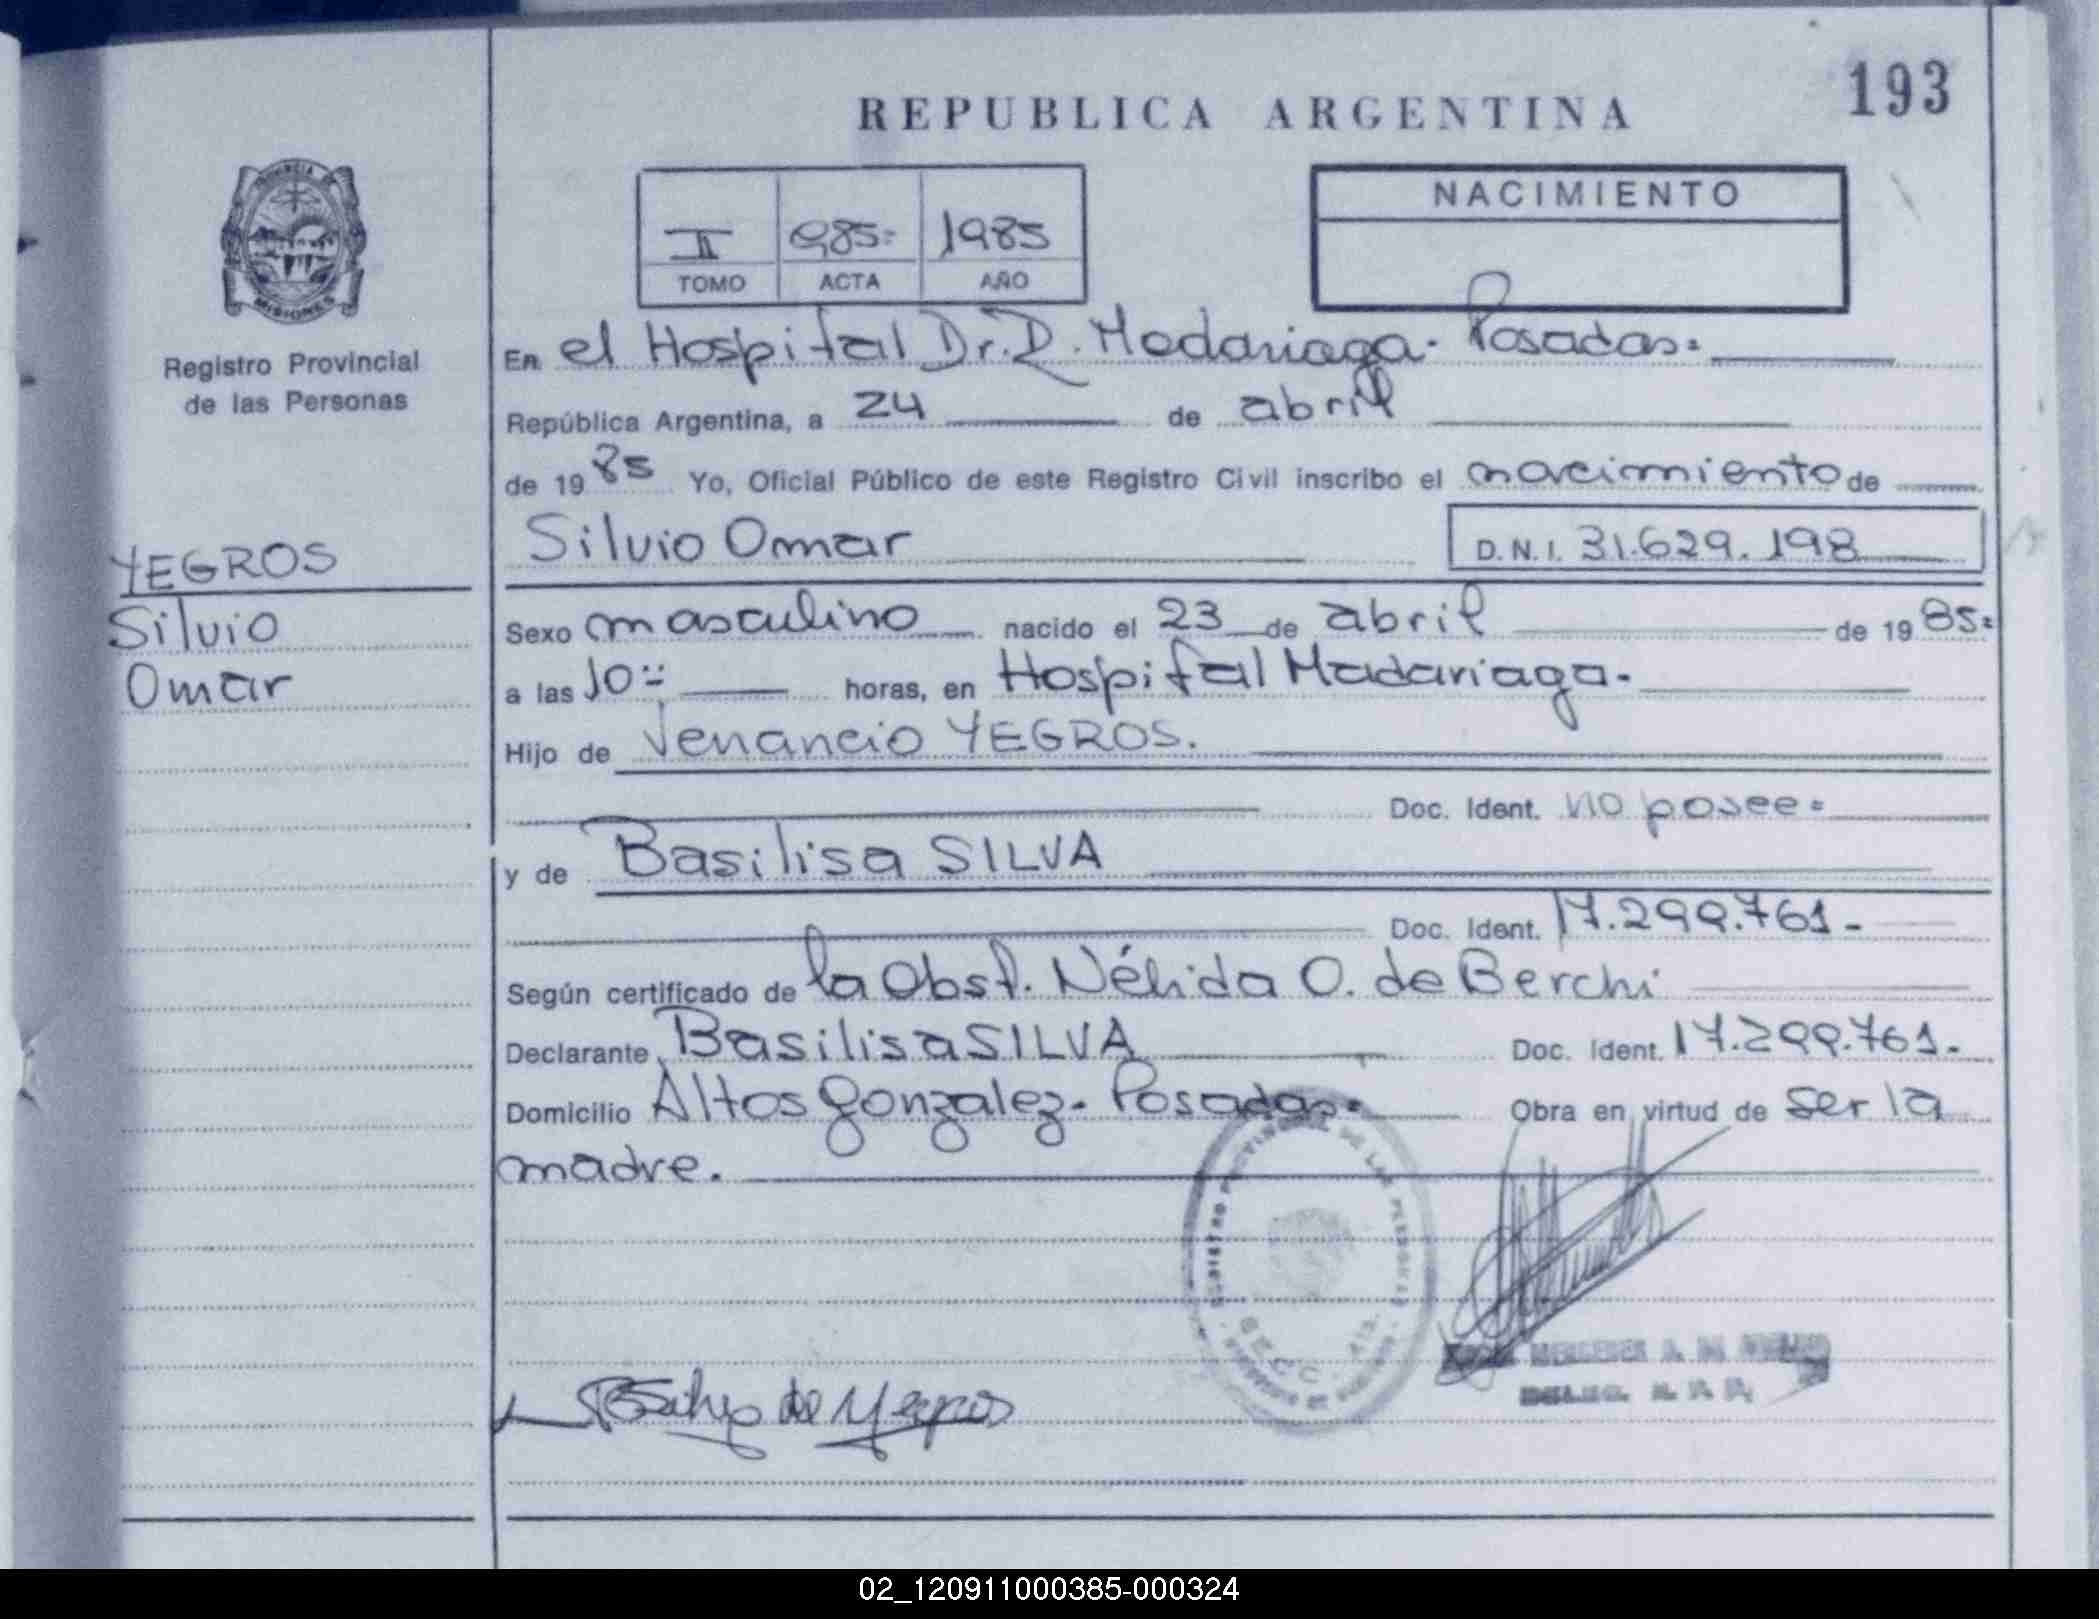 193
REPUBLICA ARGENTINA
NACIMIENTO
II 985= 1985
TOMO ACTA AÑO
PROVINCIA DE
MISIONES
Registro Provincial
de las Personas
YEGROS
Silvio
Omar
En el Hospital Dr. R. Madariaga. Posadas=
República Argentina, a 24 de abril
de 1985 Yo, Oficial Público de este Registro Civil inscribo el nacimiento de
Silvio Omar D.N.I. 31.629.198
Sexo masculino nacido el 23 de abril de 1985=
a las 10= horas, en Hospital Madariaga.
Hijo de Venancio YEGROS.
Doc. Ident. no posee=
y de Basilisa SILVA
Doc. Ident. 17.299.761.-
Según certificado de la Obst. Nélida O. de Berchi
Declarante Basilisa SILVA Doc. Ident. 17.299.761.
Domicilio Altos Gonzalez. Posadas= Obra en virtud de ser la
madre.
REGISTRO PROVINCIAL DE LAS PERSONAS
MERCEDES A. DE
B Silva de Yegros
02_120911000385-000324